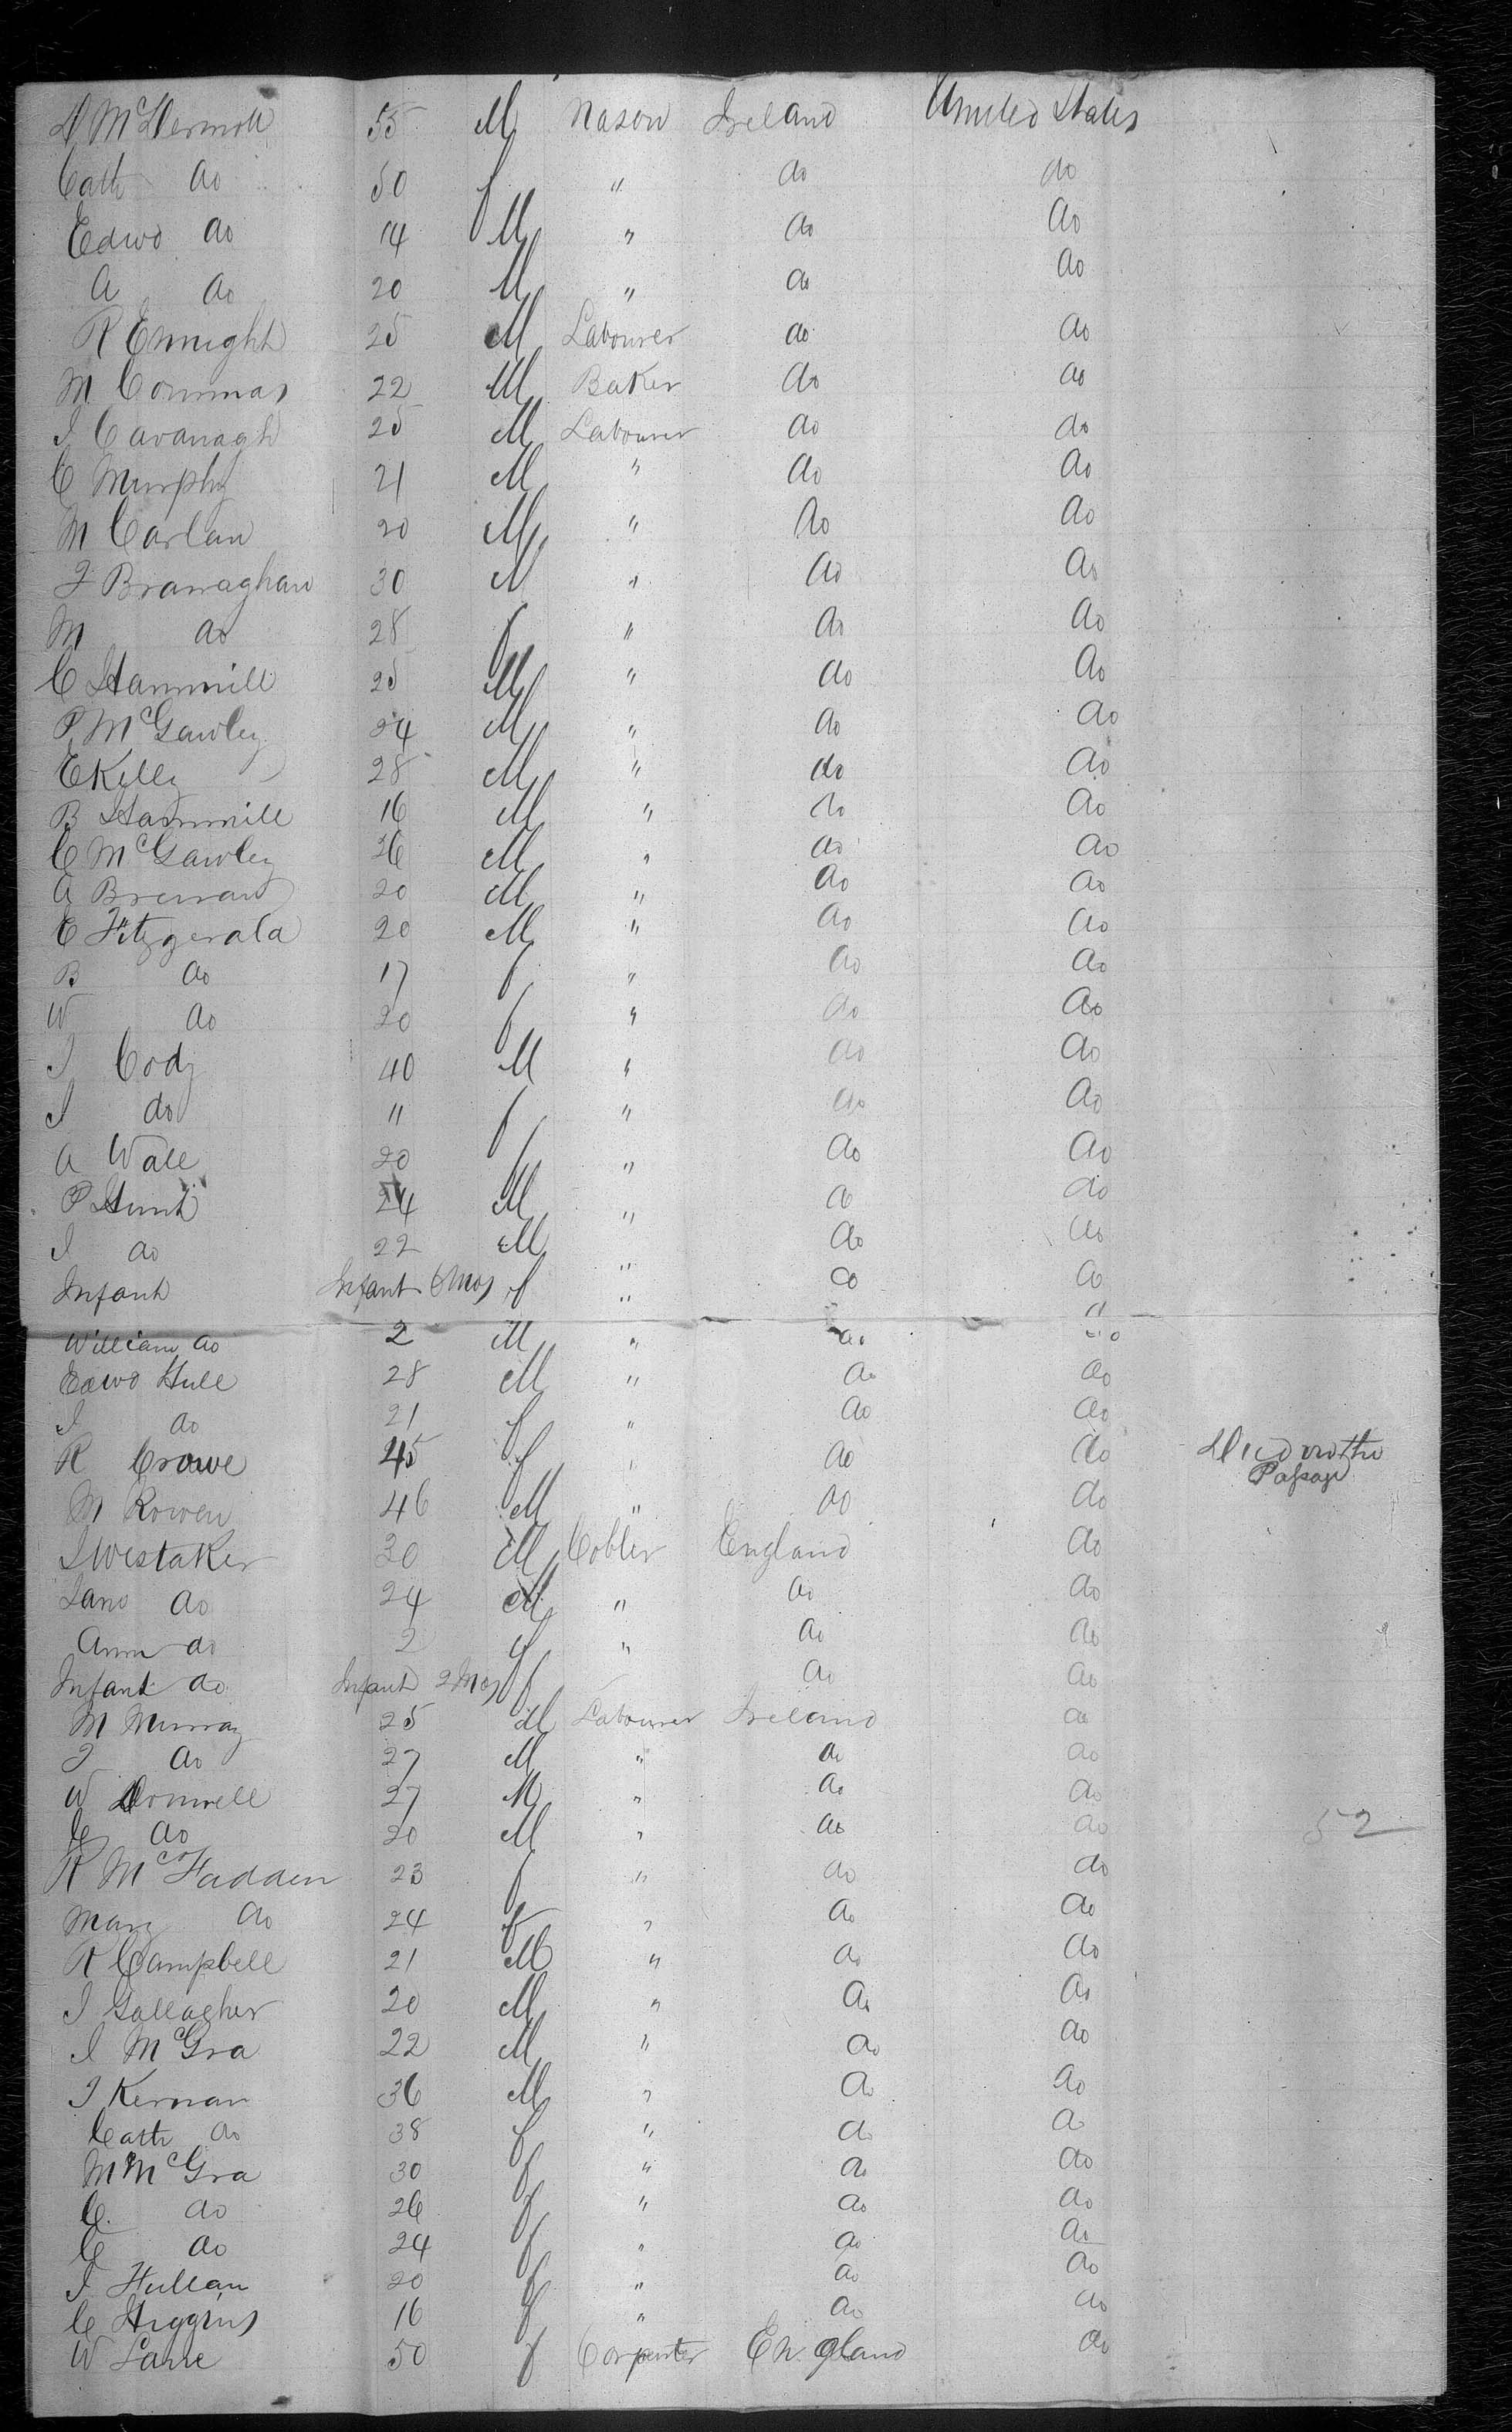 D McDermott 55 M Mason Ireland United States
Cath do 50 f " do do
Edwd do 14 M " do do
A do 20 M " do do
R Enright 25 M Labourer do do
M Commas 22 M Baker do do
J Cavanagh 25 M Labourer do do
C Murphy 21 M " do do
M Carlan 20 M " do do
J Branaghan 30 M " do do
M do 28 f " do do
C Hammill 25 M " do do
P McGawley 24 M " do do
E Kelly 28 M " do do
B Hammill 16 M " do do
C McGawley 26 M " do do
A Brenan 20 M " do do
C Fitzgerald 20 M " do do
B do 17 f " do do
W do 20 f " do do
J Cody 40 M " do do
J do 11 f " do do
A Wall 20 f " do do
P Hunt 24 M " do do
J do 22 M " do do
Infant Infant 6 Mos f " do do
William do 2 M " do do
Edwd Hull 28 M " do do
J do 21 f " do do
R Crowe 45 f " do do Died on the
Passage
M Rowen 46 M " do do
J Westaker 30 M Cobler England do
Jane do 24 M " do do
Ann do 2 f " do do
Infant do Infant 2 Mos f do do
M Murray 25 M Labourer Ireland do
J do 27 M " do do
W Donnell 27 M " do do
C do 20 M " do do 52
R McFadden 23 f " do do
Mary do 24 f " do do
R Campbell 21 M " do do
J Gallagher 20 M " do do
J McGra 22 M " do do
J Kernan 36 M " do do
Cath do 38 f " do do
M McGra 30 f " do do
C do 26 f " do do
C do 24 f " do do
J Hullan 20 f " do do
C Higgins 16 f " do do
W Lane 50 f Carpenter England do